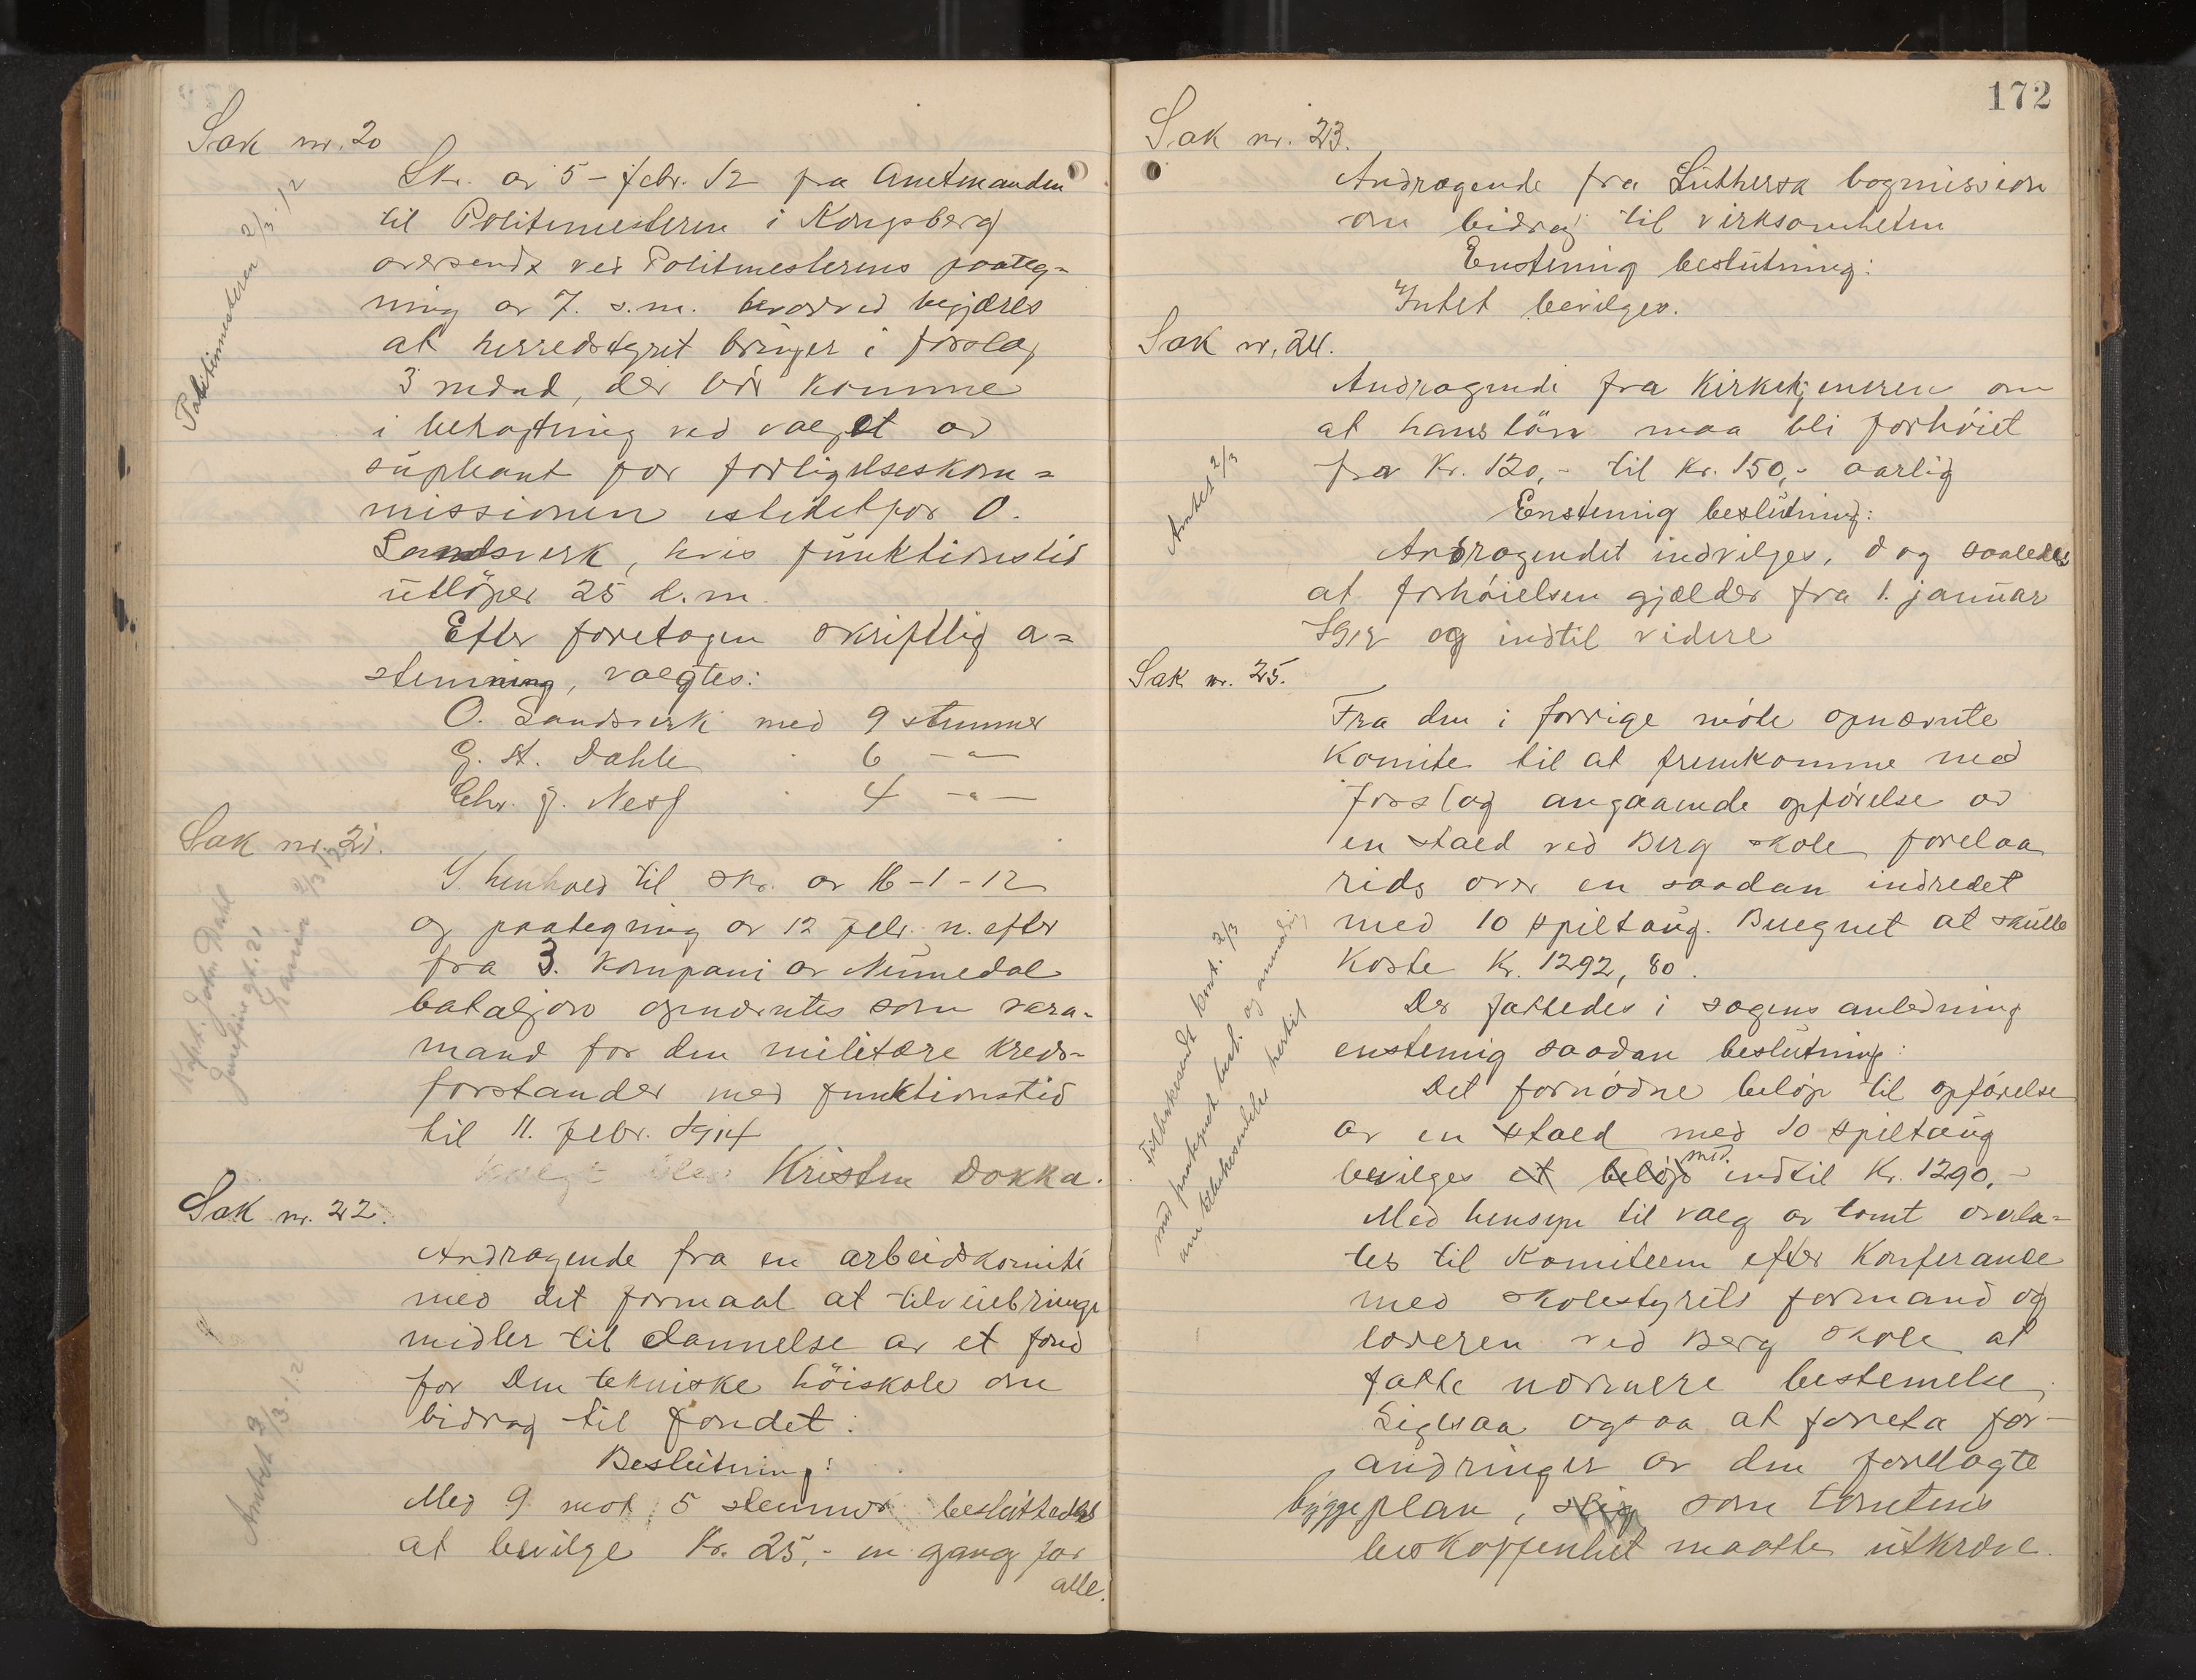 Sak nr. 20
Skr. av 5-febr. 12 fra Amtmanden
til Politimesteren i Kongsberg
oversendt ved Politmesterens paateg-
ning av 7. s.m. hvorved begjæres
at herredstyret bringer i forslag
3 mænd, der bør komme
i betragtning ved valget av
supleant for forligelseskom-
missionen istedetfor O.
Landsverk, hvis funktionstid
utløper 25 d.m.
Efter foretagen skriftlig a-
stemning, valgtes:
O. Landsverk med 9 stemmer
G. St. Dahle 6 -"-
Chr. J. Nesf 4 -"-
Politimesteren 2/3-12
Sak nr. 21.
I henhold til skr. av 16-1-12
og paategning av 12 febr. n. efter
fra 3. kompani av Numedal
bataljon opnævntes som vara-
mand for den militære kreds-
forstander med funktionstid
til 11. febr. 1914
valgt blev Kristen Dokka.
Kapt. Joh. Dahl
Josefinegt. 21
2/3 12
Sak nr. 22.
Andragende fra en arbeidskomité
med det formaal at tilveiebringe
midler til dannelse av et fond
for Den tekniske høiskole om
bidrag til fondet.
Beslutning:
Med 9 mot 5 stemmer besluttedes
at bevilge Kr. 25,- en gang for
alle.
Amtet 2/3-12
172
Sak nr. 23.
Andragende fra Luthersk bogmission
om bidrag til virksomheten
Enstemig beslutning:
Intet bevilges.
Sak nr. 24.
Andragende fra Kirketjeneren om
at hans løn maa bli forhøiet
fra Kr. 120,- til Kr. 150,- aarlig
Enstemig beslutning:
Andragendet indvilges, dog saaledes
at forhøielsen gjælder fra 1. januar
1912 og indtil videre
Amtet 2/3
Sak nr. 25.
Fra den i forrige møte opnævnte
Komite til at fremkomme med
forslag angaaende opførelse av
en stald ved Berg skole forelaa
rids over en saadan indredet
med 10 spiltaug. Beregnet at skulle
koste Kr. 1292,80.
Der fattedes i sagens anledning
enstemig saadan beslutning:
Det fornødne beløp til opførelse
av en stald med 10 spiltaug
bevilges et beløp med indtil Kr. 1290.-
Med hensyn til valg av tomt overla-
tes til Komiteen efter Konferanse
med skolestyrets formand og
læreren ved Berg skole at
fatte nærmere bestemelse
Ligesaa ogsaa at foreta for-
andringer av den forelagte
byggeplan, slig som tomtens
beskaffenhet maatte utkræve.
Tilbakesendt Amt. 2/3
med paategnet besl. og anmodn.
om tilbakesendelse hertil